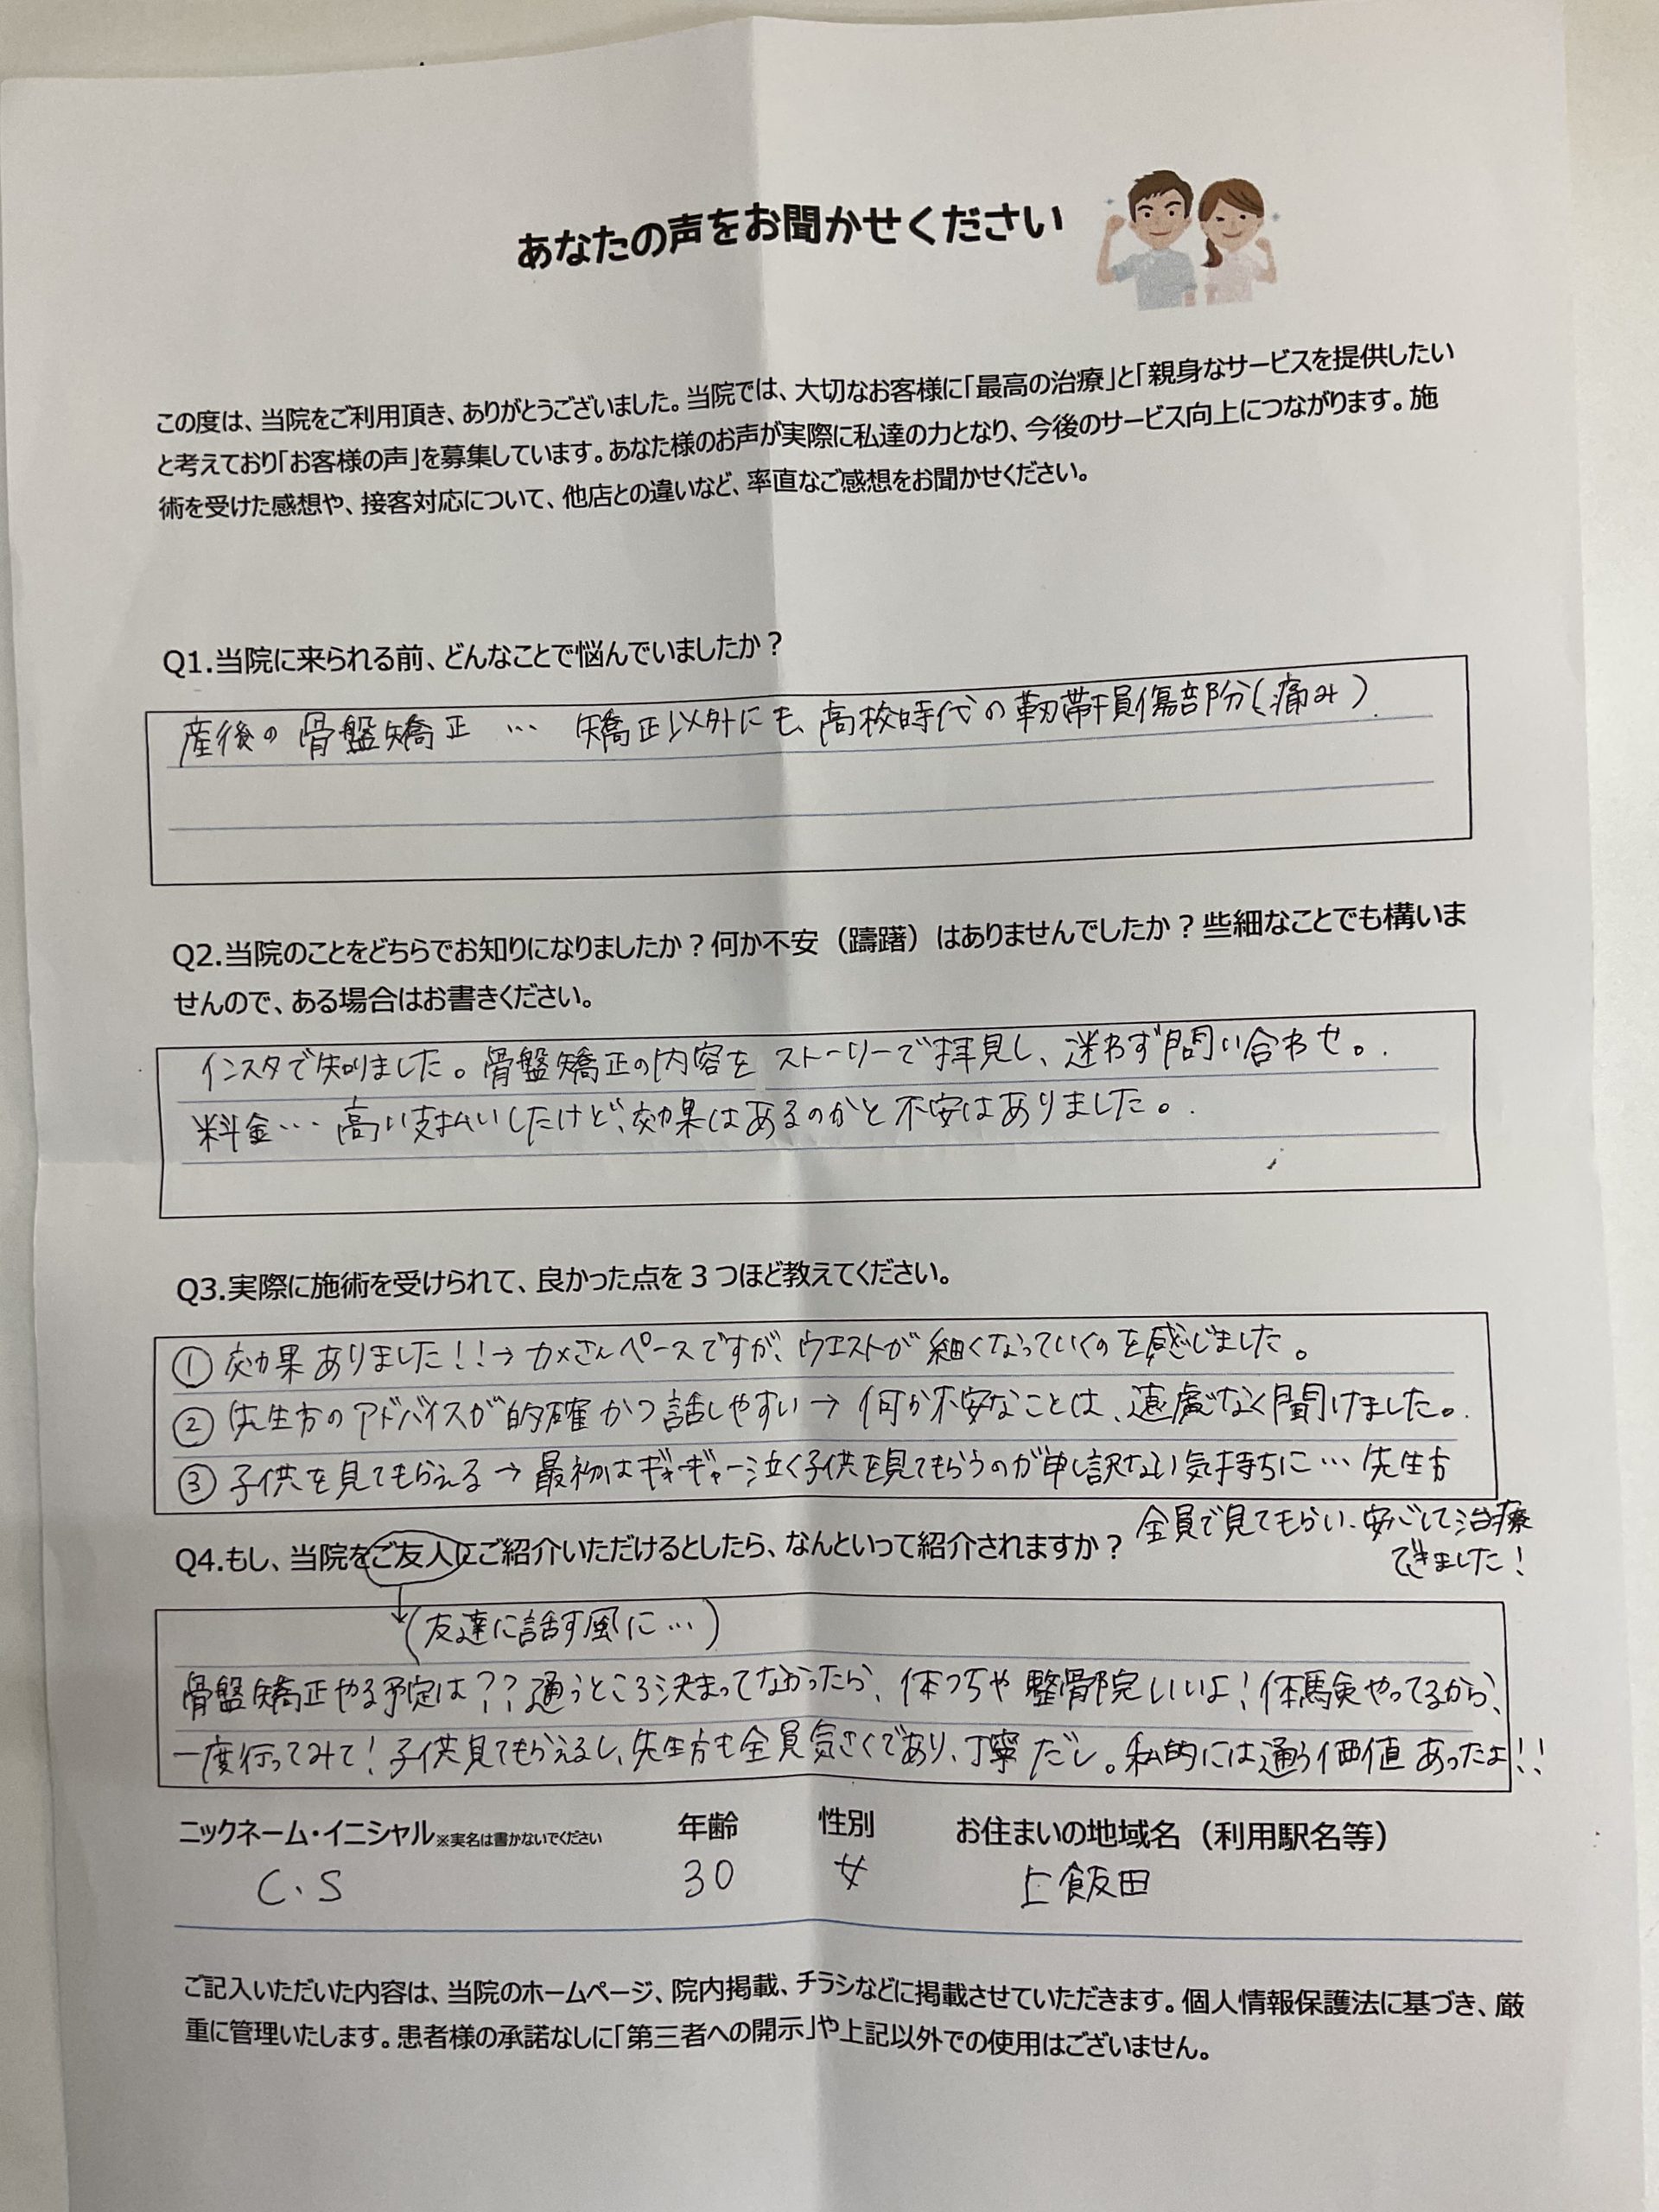 あなたの声をお聞かせください
この度は、当院をご利用頂き、ありがとうございました。当院では、大切なお客様に「最高の治療」と「親身なサービスを提供したい
と考えており「お客様の声」を募集しています。あなた様のお声が実際に私達の力となり、今後のサービス向上につながります。施
術を受けた感想や、接客対応について、他店との違いなど、率直なご感想をお聞かせください。
Q1.当院に来られる前、どんなことで悩んでいましたか？
産後の骨盤矯正 … 矯正以外にも、高校時代の靭帯損傷部分(痛み)
Q2.当院のことをどちらでお知りになりましたか？何か不安（躊躇）はありませんでしたか？些細なことでも構いま
せんので、ある場合はお書きください。
インスタで知りました。骨盤矯正の内容を ストーリーで拝見し、迷わず問い合わせ。
料金… 高い支払いしたけど、効果はあるのかと不安はありました。
Q3.実際に施術を受けられて、良かった点を３つほど教えてください。
① 効果ありました!!→カメさんペースですが、ウエストが細くなっていくのを感じました。
② 先生方のアドバイスが的確かつ話しやすい → 何か不安なことは、遠慮なく聞けました。
③ 子供を見てもらえる → 最初はギャーギャー泣く子供を見てもらうのが申し訳ない気持ちに… 先生方
全員で見てもらい、安心して治療
できました!
Q4.もし、当院をご友人にご紹介いただけるとしたら、なんといって紹介されますか？
(友達に話す風に…)
骨盤矯正やる予定は??通うところ決まってなかったら、体つちや整骨院いいよ!体験やってるから、
一度行ってみて!子供見てもらえるし、先生方も全員気さくであり、丁寧だし。私的には通う価値あったよ!!
ニックネーム・イニシャル※実名は書かないでください 年齢 性別 お住まいの地域名（利用駅名等）
C.S 30 女 上飯田
ご記入いただいた内容は、当院のホームページ、院内掲載、チラシなどに掲載させていただきます。個人情報保護法に基づき、厳
重に管理いたします。患者様の承諾なしに「第三者への開示」や上記以外での使用はございません。